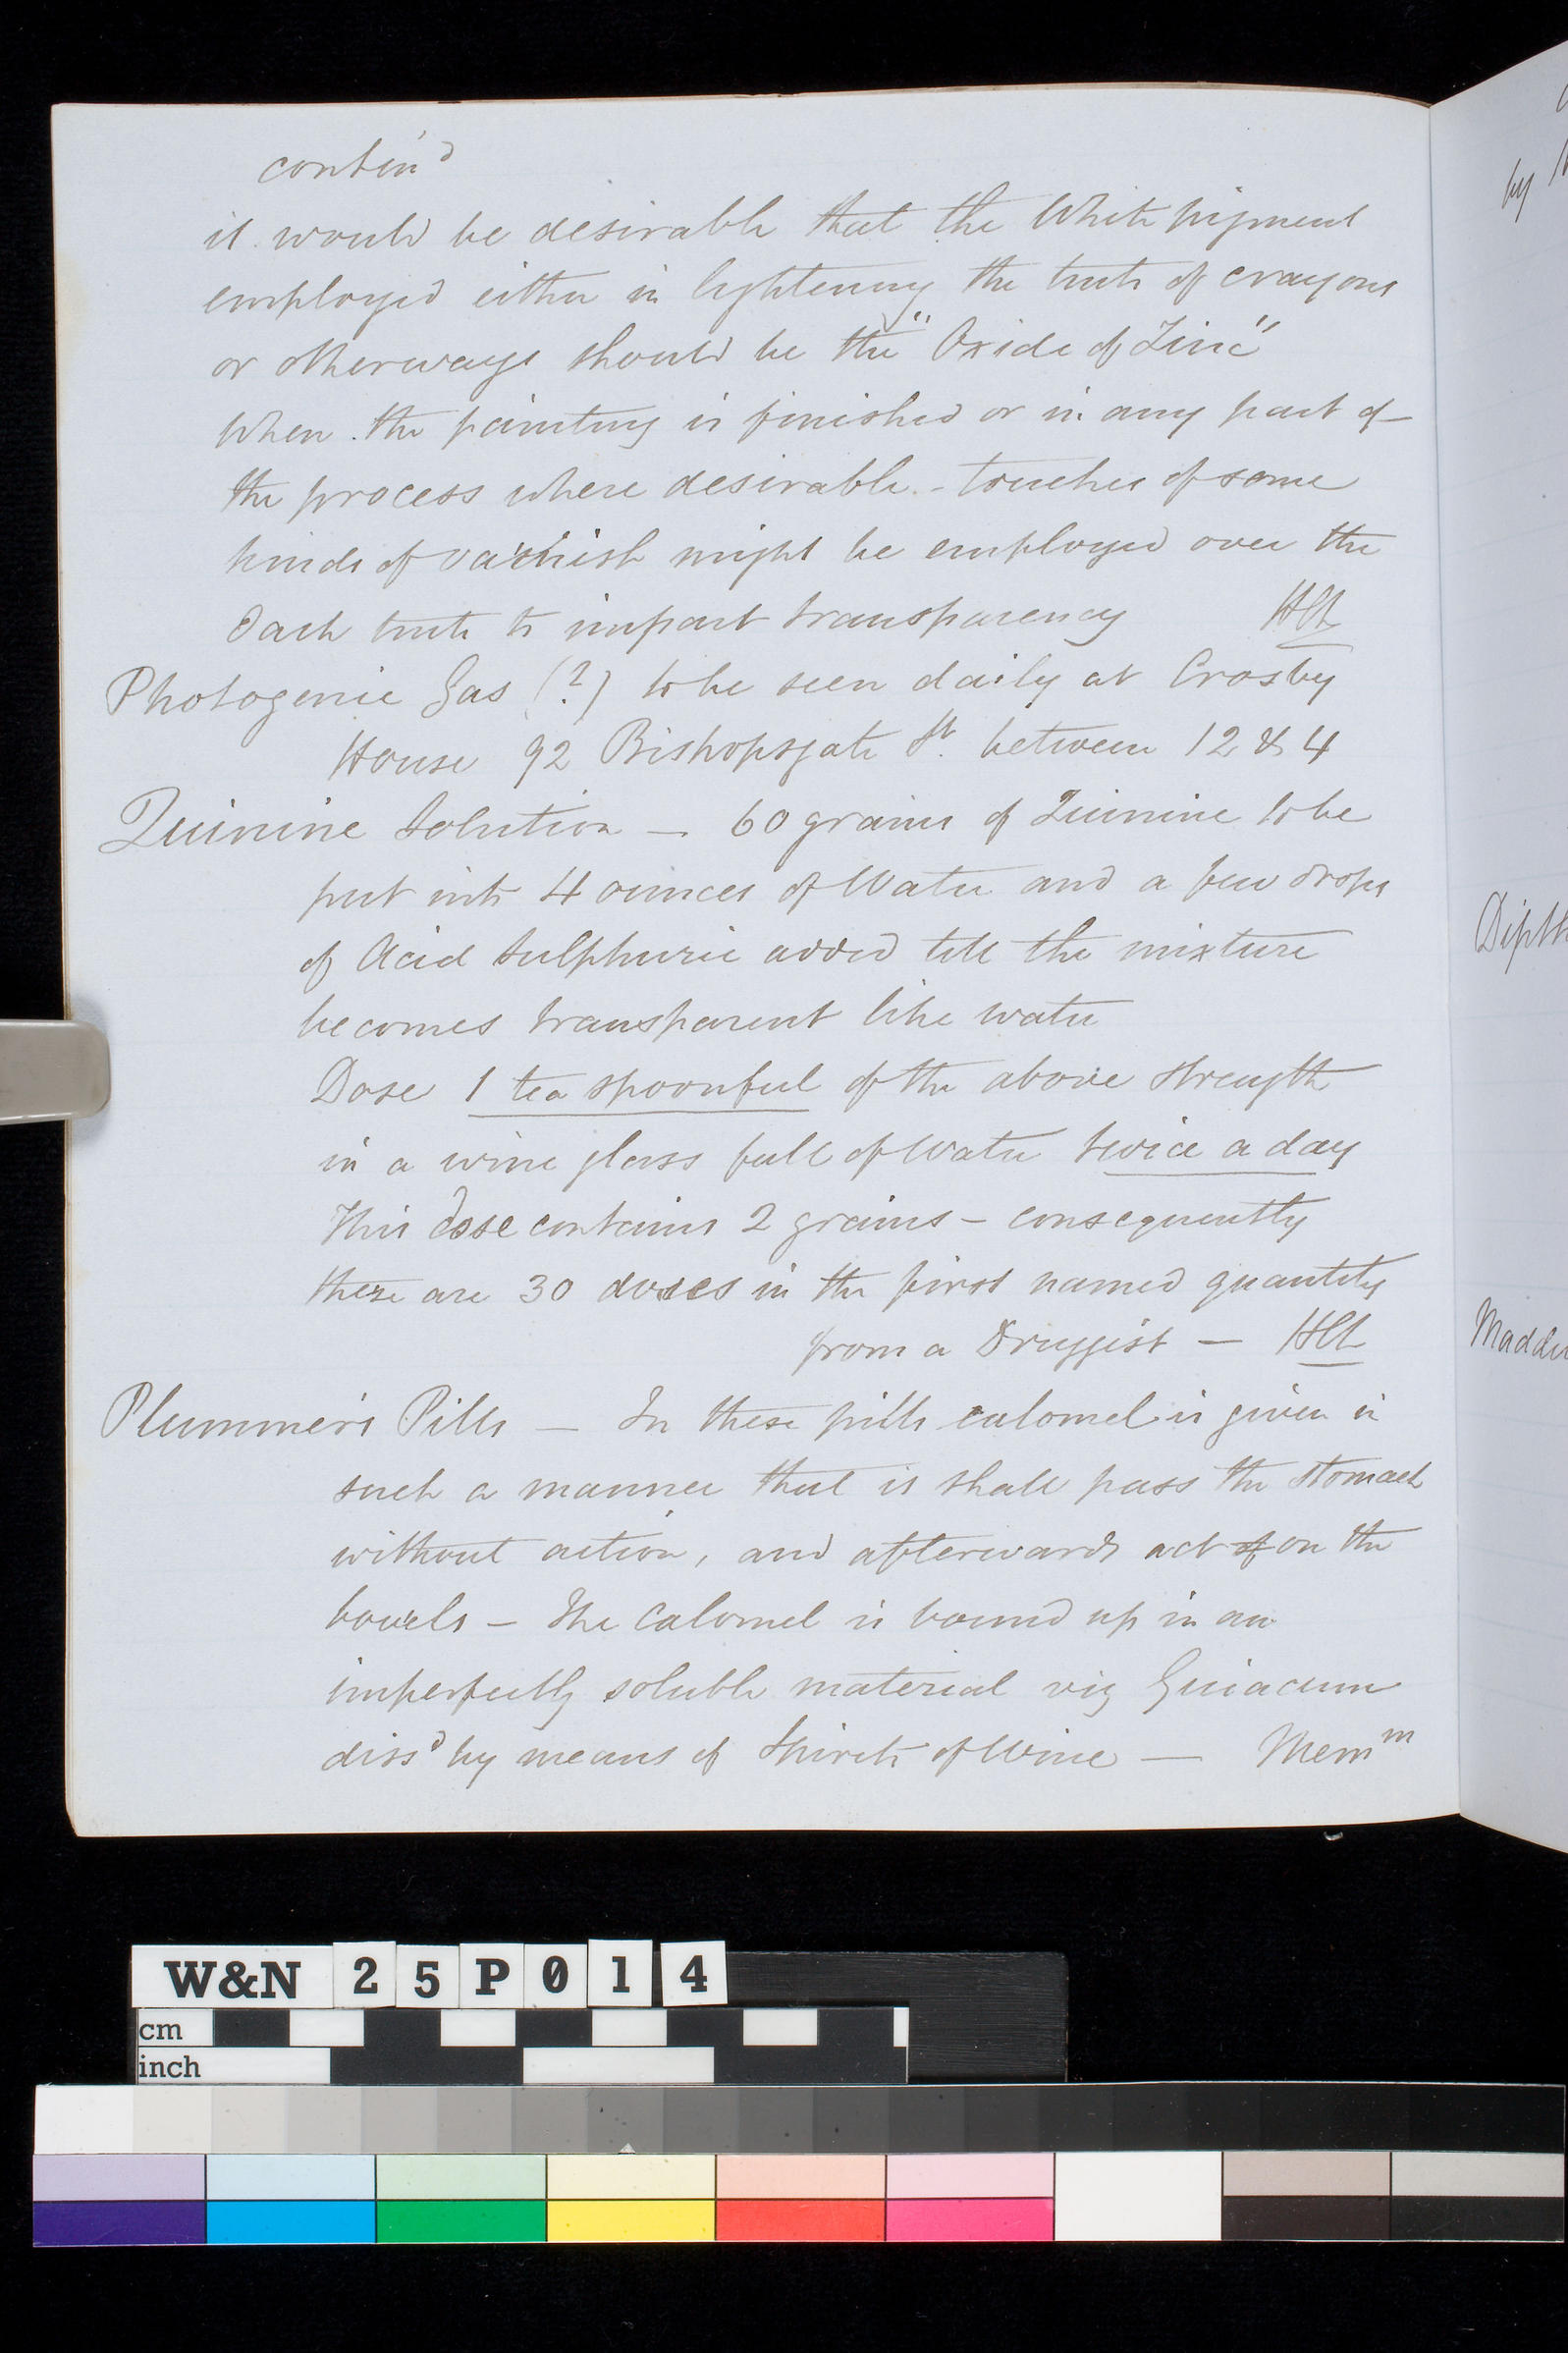 contin'd
it would be desirable that the White pigment
employed either in lightening the tints of crayons
or otherways should be the "Oxide of Zinc"
When the painting is finished or in any part of
the process where desirable - touches of some
kinds of varnish might be employed over the
dark tints to impart transparency HCN
Photogenic Gas (?) to be seen daily at Crosby
House 92 Bishopsgate St. between 12 & 4
Quinine Solution — 60 grains of Quinine to be
put into 4 ounces of Water and a few drops
of Acid Sulphuric added till the mixture
becomes transparent like water
Dose 1 tea spoonful of the above strength
in a wine glass full of Water twice a day
This dose contains 2 grains - consequently
there are 30 doses in the first named quantity
from a Druggist — HCN
Plummer's Pills — In these pills calomel is given in
such a manner that is shall pass the stomach
without action, and afterwards act of on the
bowels - The Calomel is bound up in an
imperfectly soluble material viz Guiacum
diss'd by means of Spirits of Wine — Mem m
by
Dipth
Madde
W&N 25P014
cm
inch